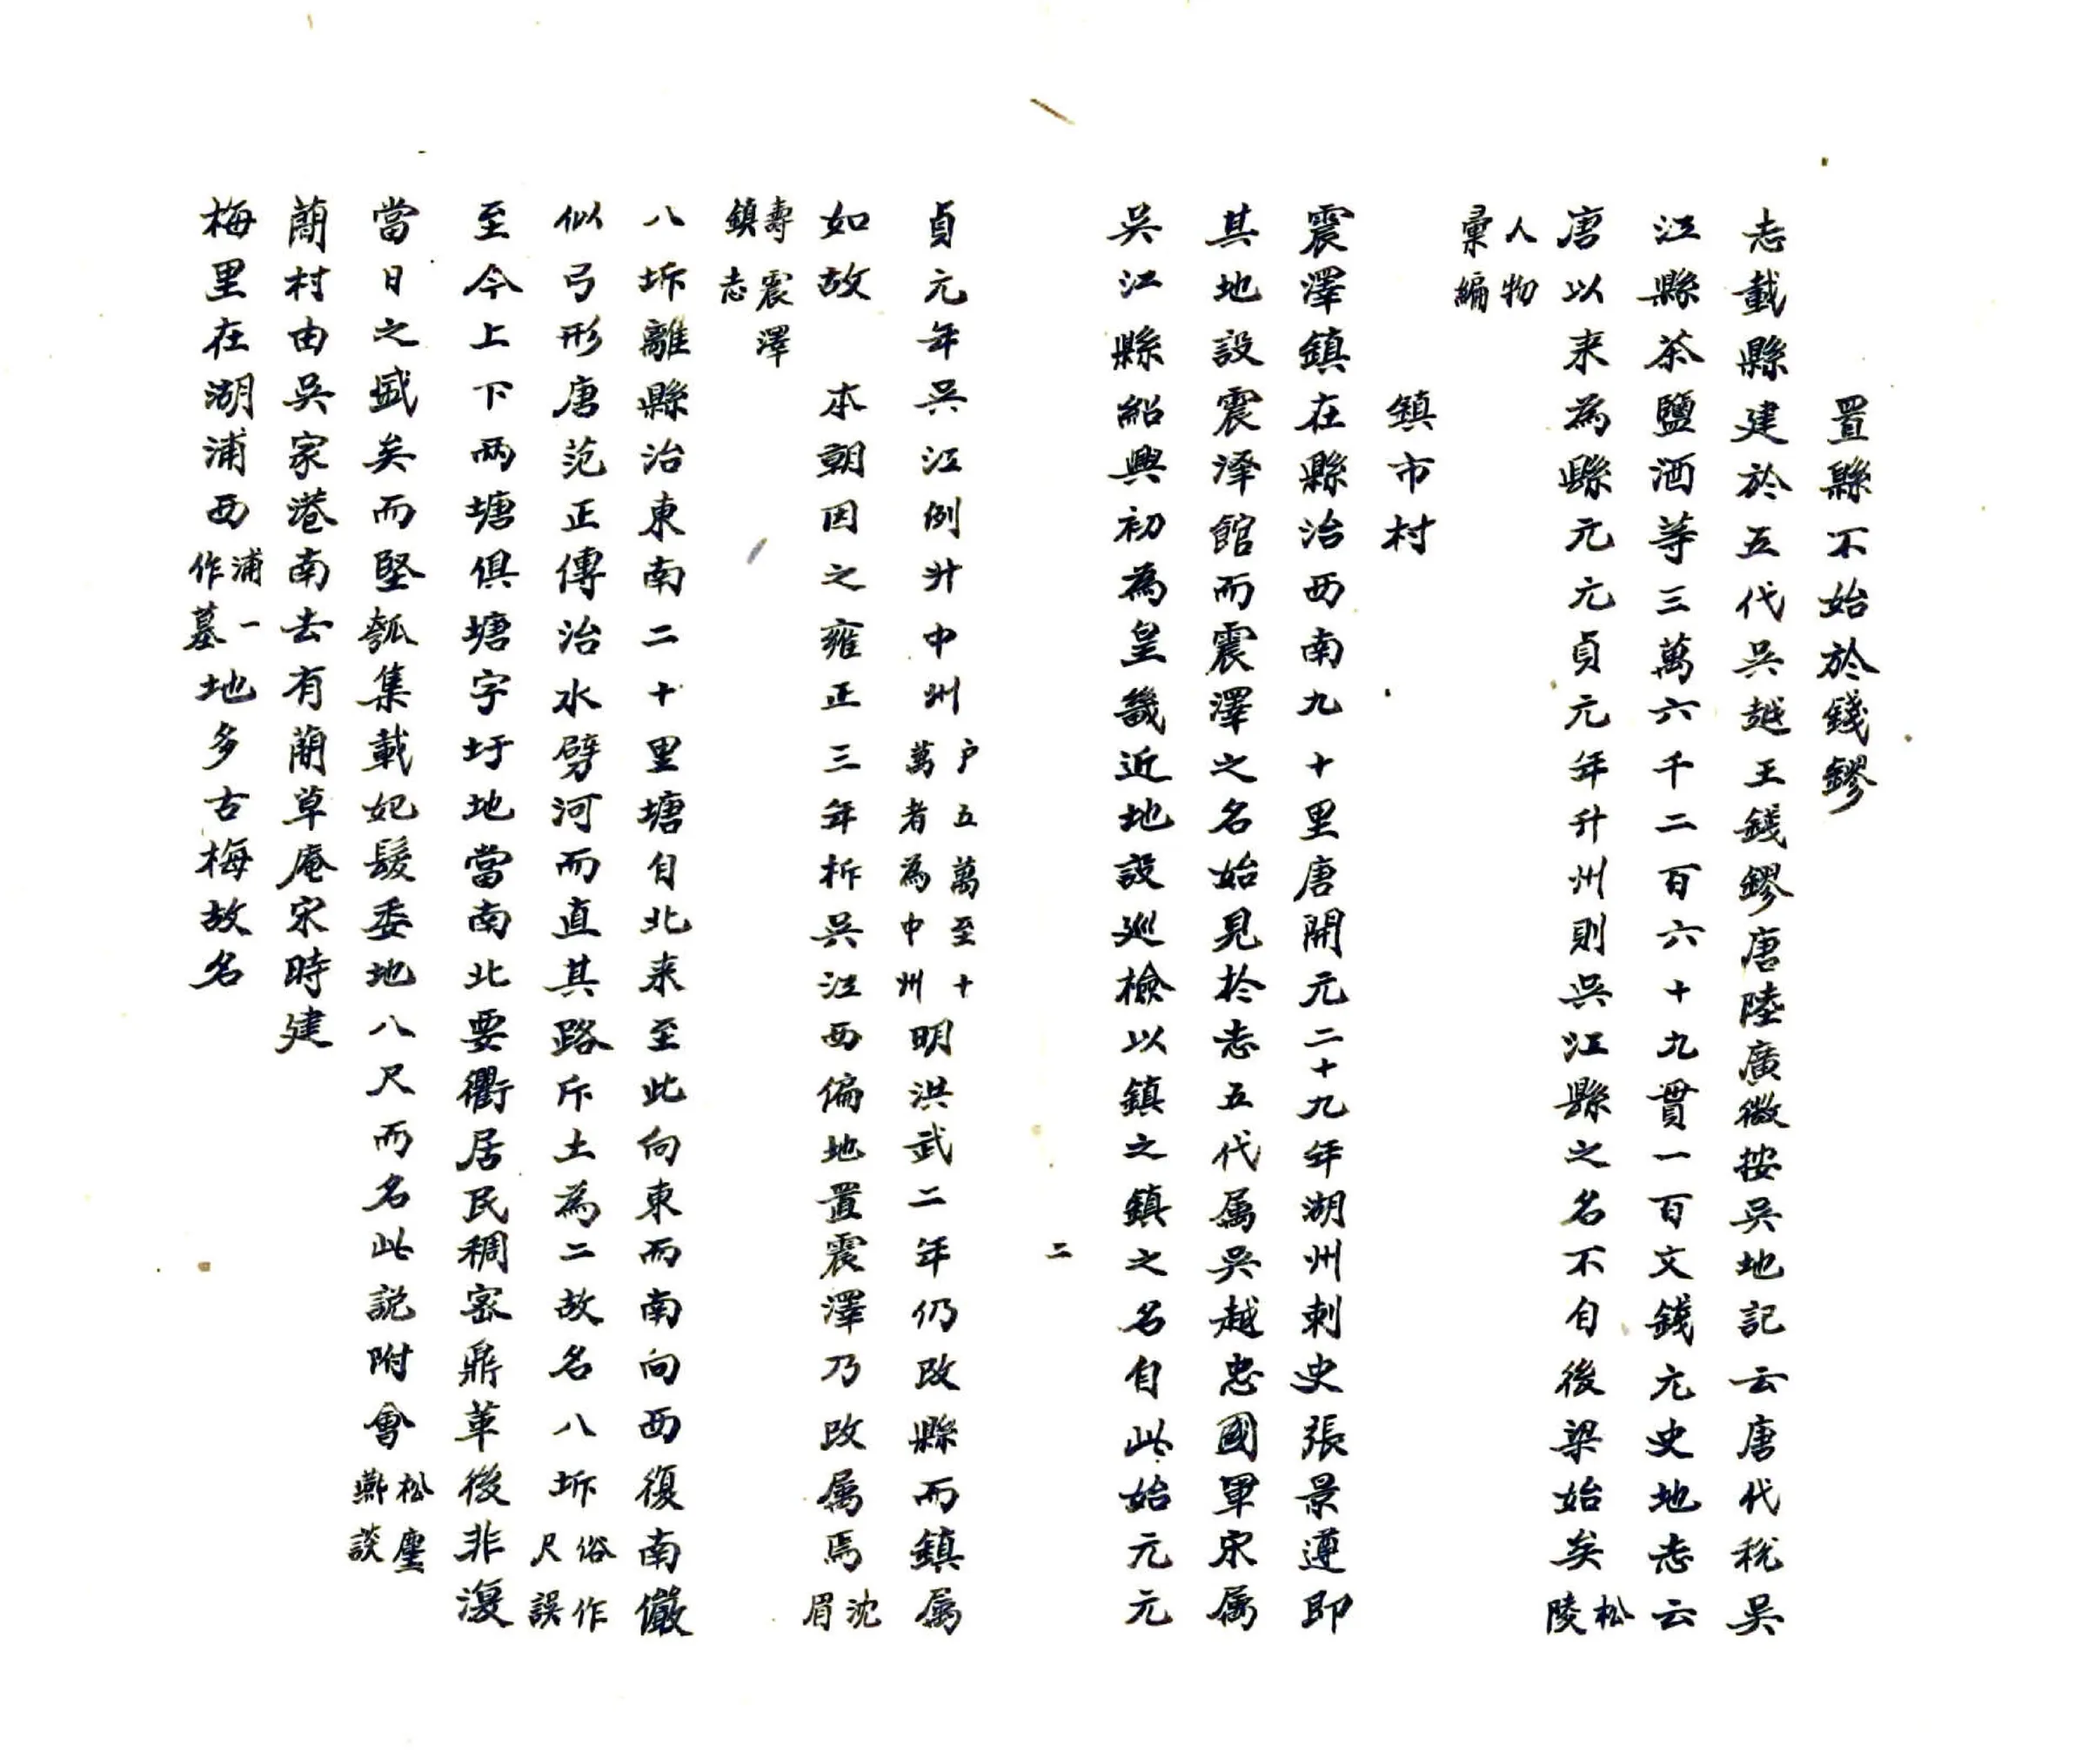 置縣不始於錢鏐
志載縣建於五代吳越王錢鏐唐陸廣微按吳地記云唐代稅吳
江縣茶鹽酒等三萬六千二百六十九貫一百文錢元史地志云
唐以来為縣元元貞元年升州則吳江縣之名不自後梁始矣松陵
人物彙編
鎮市村
震澤鎮在縣治西南九十里唐開元二十九年湖州刺史張景遵即
其地設震泽館而震澤之名始見於志五代属吳越忠國軍宋属
吳江縣紹興初為皇畿近地設巡檢以鎮之鎮之名自此始元元
二
貞元年吳江例升中州户五萬至十萬者為中州明洪武二年仍改縣而鎮属
如故 本朝因之雍正三年析吳江西偏地置震澤乃改属焉沈眉
壽震澤鎮志
八坼離縣治東南二十里塘自北来至此向東而南向西復南儼
似弓形唐范正傳治水劈河而直其路斥土為二故名八坼俗作尺誤
至今上下两塘俱塘字圩地當南北要衢居民稠宻鼎革後非復
當日之盛矣而堅瓠集載妃髮委地八尺而名此說附會松塵燕談
蕑村由吳家港南去有蕑草庵宋時建
梅里在湖浦西浦一作墓地多古梅故名